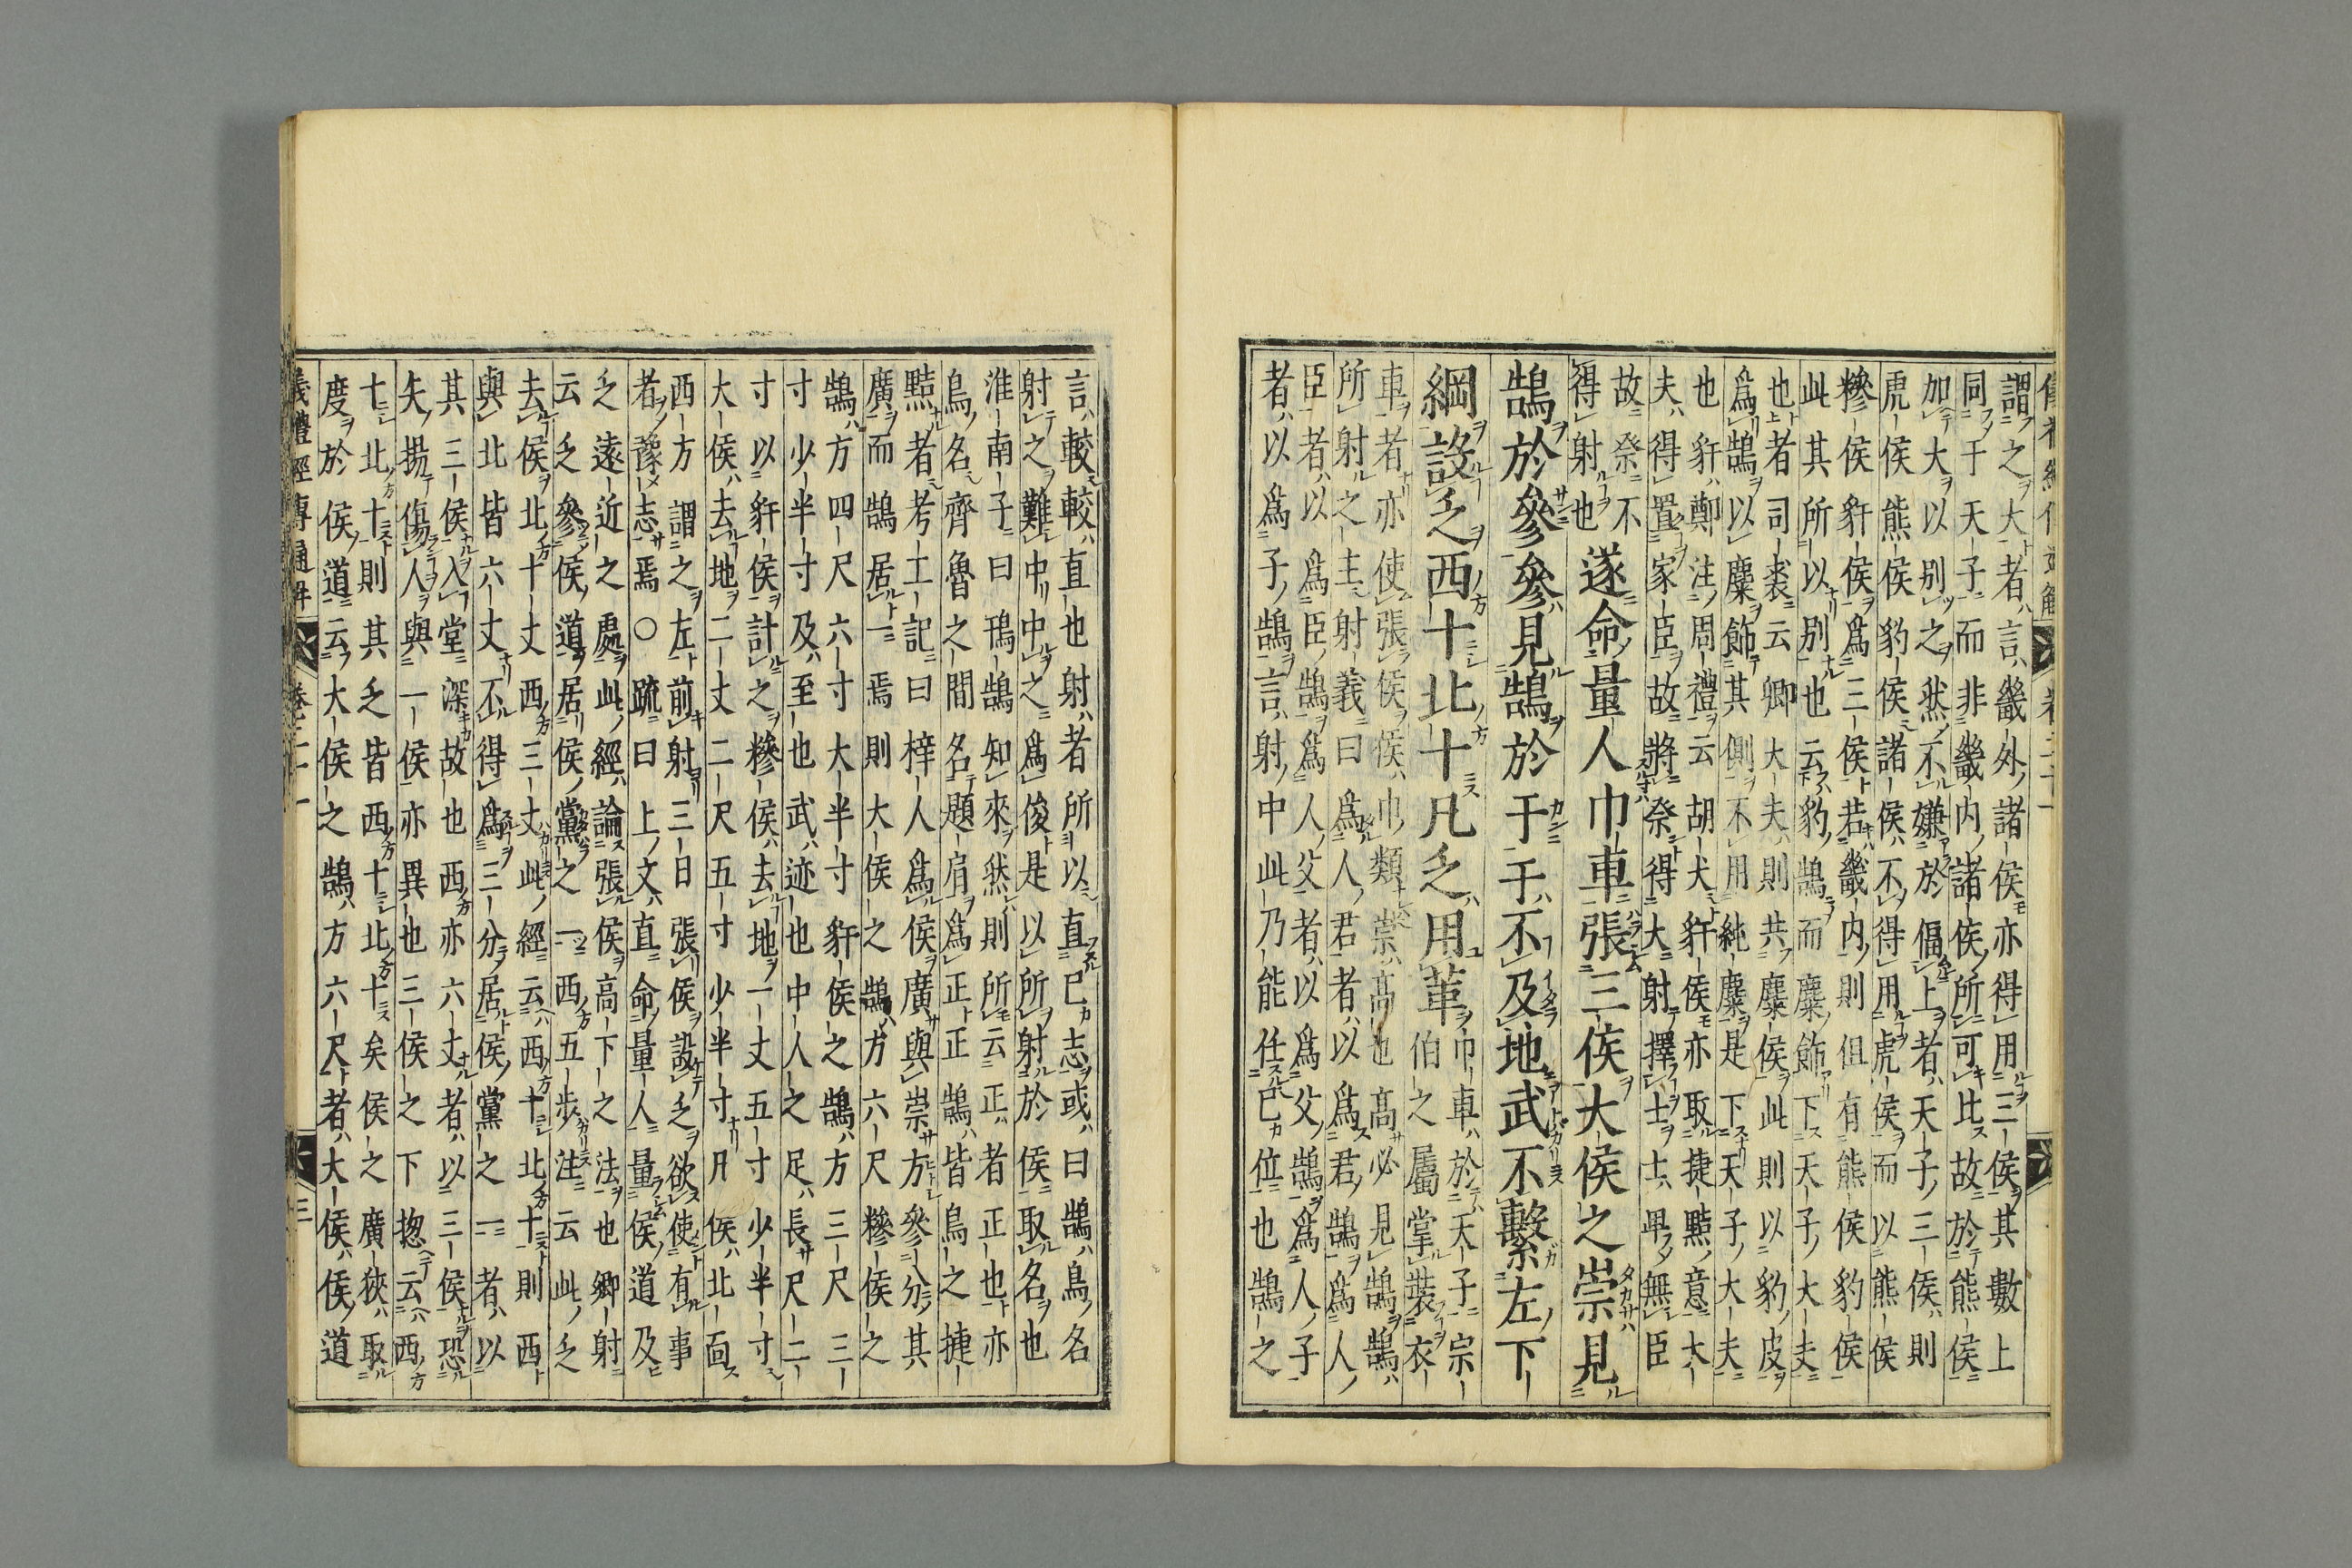 謂之大者言畿外諸侯亦得用三侯其數上
同于天子而非畿内諸侯所可比故於熊侯
加大以别之然不嫌於偪上者天子三侯則
虎侯熊侯豹侯諸侯不得用虎侯而以熊侯
糝侯豻侯爲三侯若畿内則但有熊侯豹侯
此其所以别也云豹鵠而麋飾下天子大夫
也者司裘云卿大夫則共麋侯此則以豹皮
爲鵠以麋飾其側不用純麋是下天子大夫
也豻鄭注周禮云胡犬豻侯亦取捷黠意大
夫得置家臣故將祭得大射擇士士卑無臣
故祭不
得射也
遂命量人巾車張三侯大侯之崇見
鵠於參參見鵠於于于不及地武不繫左下
綱設乏西十北十凡乏用革
巾車於天子宗
伯之屬掌裝衣
車者亦使張侯侯巾類崇髙也髙必見鵠鵠
所射之主射義曰爲人君者以爲君鵠爲人
臣者以爲臣鵠爲人父者以爲父鵠爲人子
者以爲子鵠言射中此乃能任已位也鵠之
言較較直也射者所以直已志或曰鵠鳥名
射之難中中之爲俊是以所射於侯取名也
淮南子曰鳱鵠知來然則所云正者正也亦
鳥名齊魯之間名題肩爲正正鵠皆鳥之捷
黠者考工記曰梓人爲侯廣與崇方參分其
廣而鵠居一焉則大侯之鵠方六尺糝侯之
鵠方四尺六寸大半寸豻侯之鵠方三尺三
寸少半寸及至也武迹也中人之足長尺二
寸以豻侯計之糝侯去地一丈五寸少半寸
大侯去地二丈二尺五寸少半寸凡侯北面
西方謂之左前射三日張侯設乏欲使有事
者豫志焉○疏曰上文直命量人量侯道及
乏遠近之處此經論張侯高下之法也卿射
云乏參侯道居侯黨之一西五步注云此乏
去侯北十丈西三丈此經云西十北十則西
與北皆六丈不得爲三分居侯黨之一者以
其三侯入堂深故也西亦六丈者以三侯恐
矢揚傷人與一侯亦異也三侯之下揔云西
十北十則其乏皆西十北十矣侯之廣狹取
度於侯道云大侯之鵠方六尺者大侯侯道